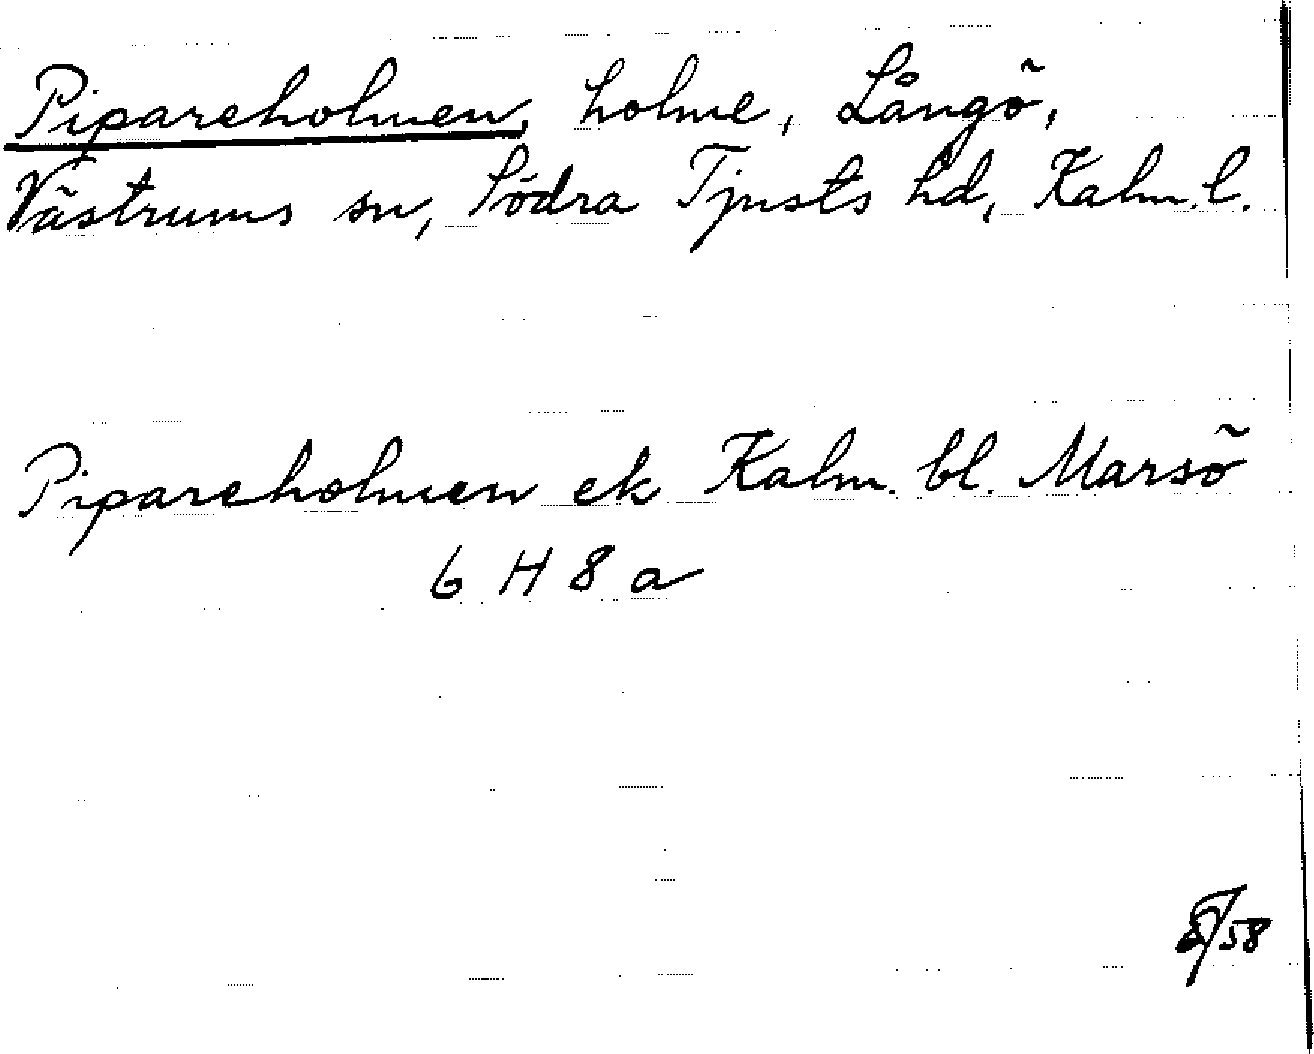 Pipareholmen, holme, Långö,
Västrums sn, Södra Tjusts hd, Kalm. l.
Pipareholmen ek Kalm. bl. Marsö
6 H 8 a
/58